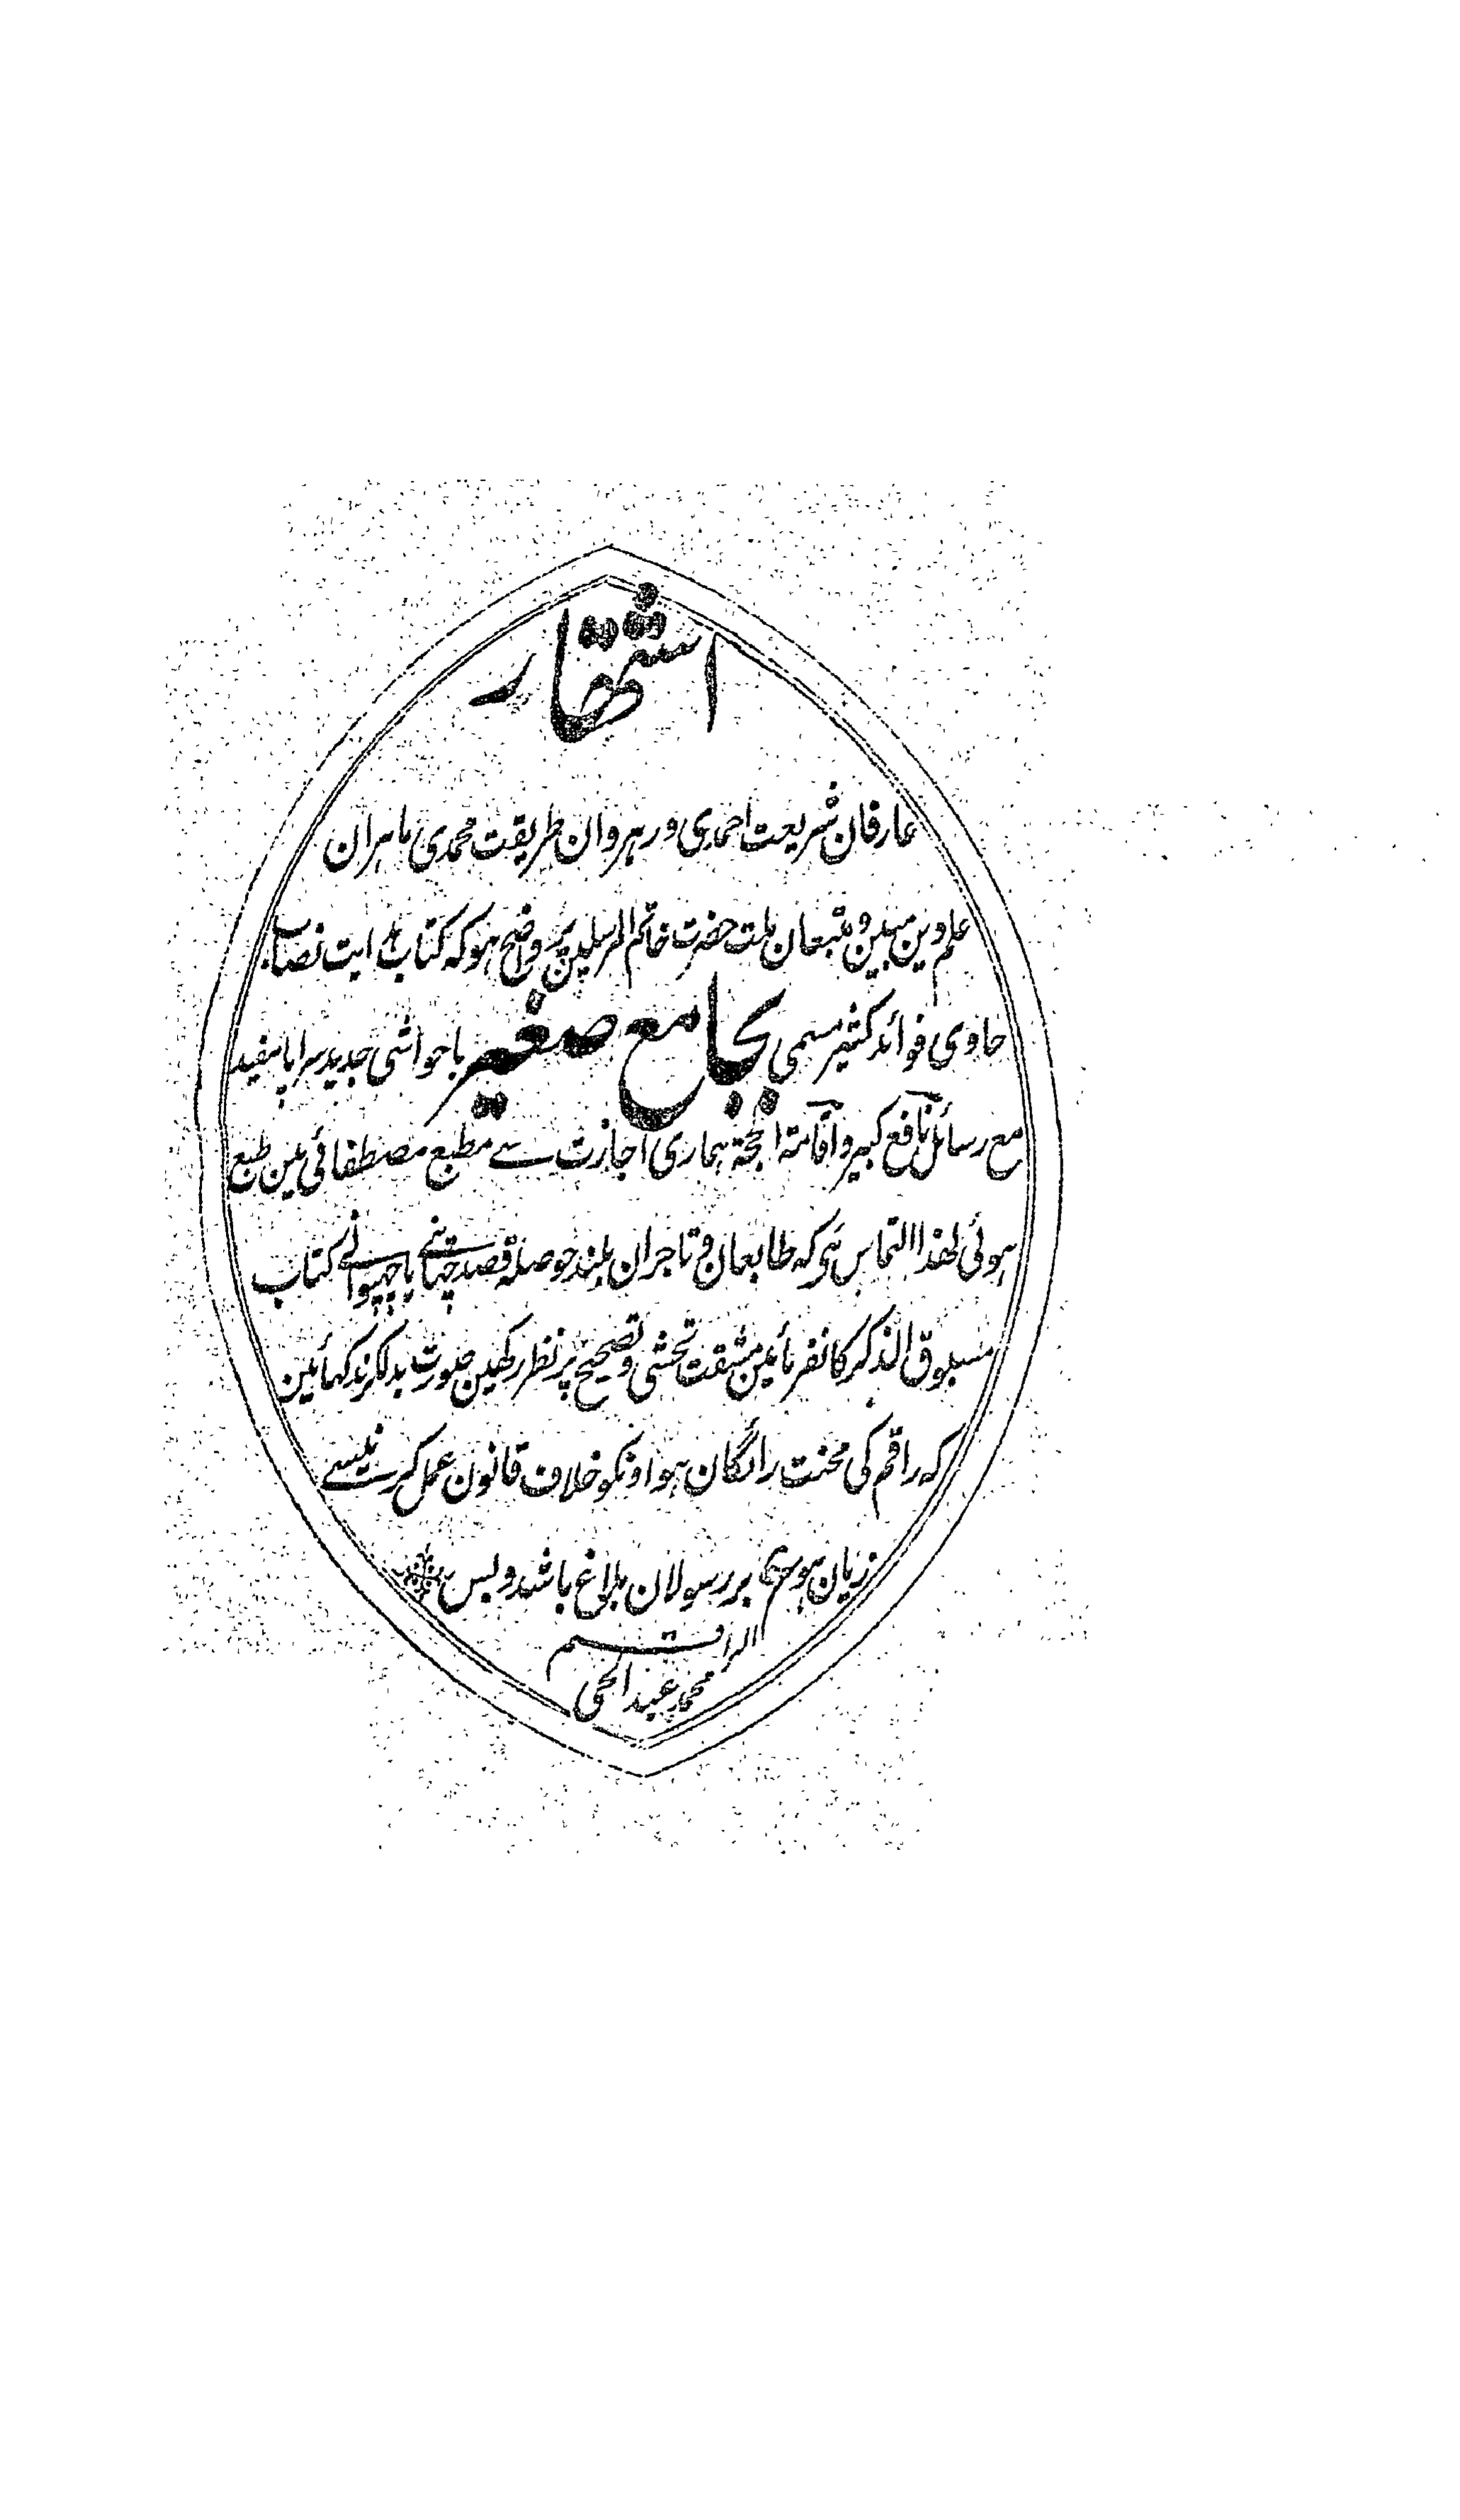 اشتهار
عارفان شریعت احمدی و رہروان طریقت محمدی ماہران
علم دین مبین و متبعان ملت حضرت خاتم المرسلین پر واضح ہو کہ کتاب ہدایت نصاب
حاوی فوائد کثیر مسمی بجامع صغیر با حواشی جدید سراپا مفید
مع رسائل نافع کبیر و اقامۃ الحجۃ ہماری اجازت سے مطبع مصطفائی مین طبع
ہوئی لھذا التماس ہی کہ طابعان و تاجران بلند حوصلہ قصد چھاپنے یا چھپوانے کتاب
مسبوق الذکر کا نفرمائین مشقت تحشی و تصحیح پر نظر رکھین صورت بدلکر ندکھائین
کہ راقم کی محنت رائگان ہو اونکو خلاف قانون عمل کرنیسے
زیان ہو ع بر رسولان بلاغ باشد و بس
الراقم
محمد عبد الحی